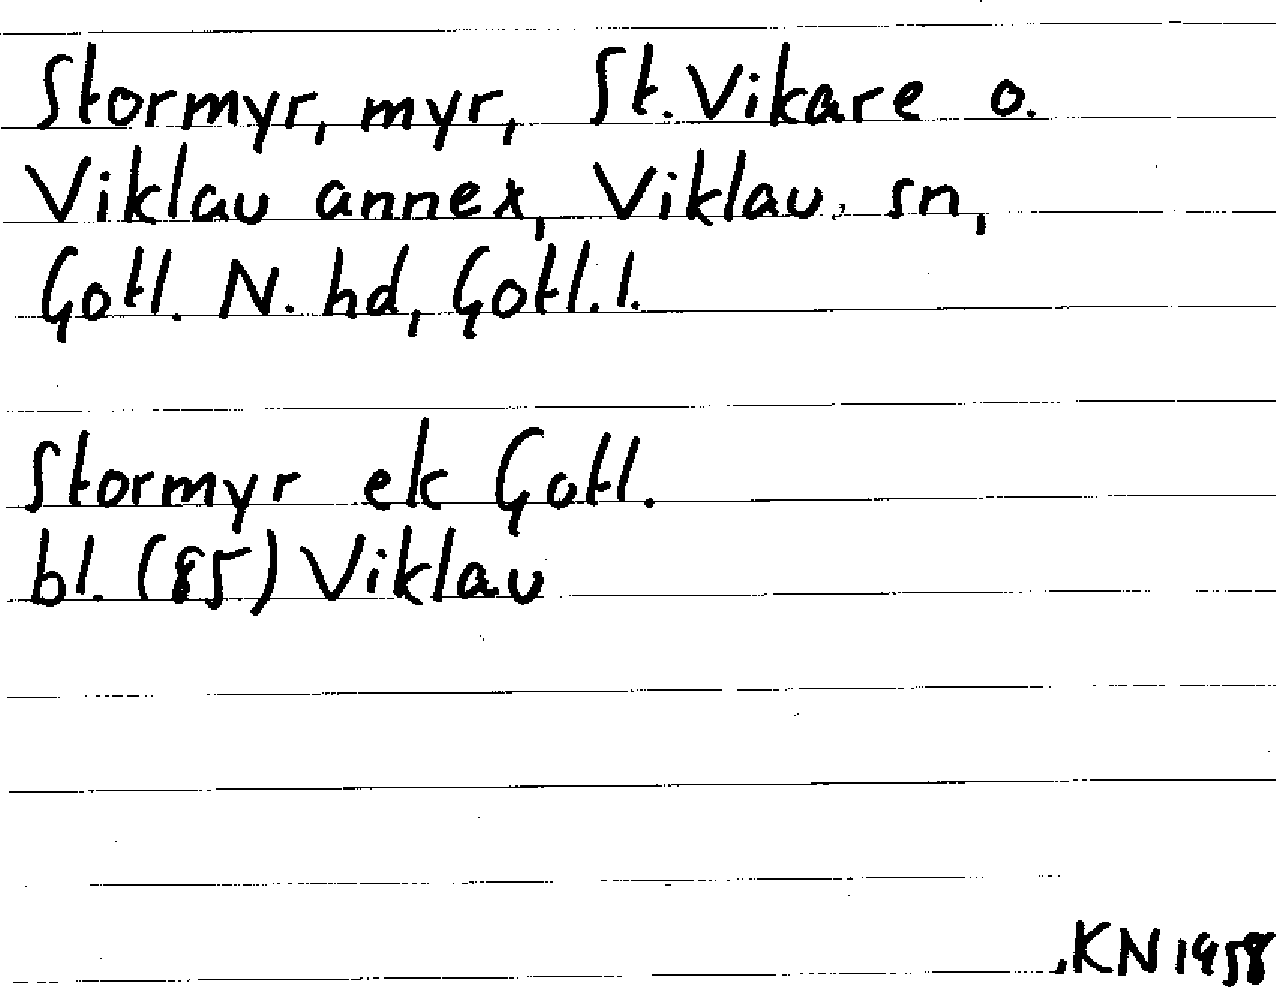 Stormyr, myr, St. Vikare o.
Viklau annex, Viklau sn,
Gotl. N. hd, Gotl. l.
Stormyr ek Gotl.
bl. (85) Viklau
KN 1958